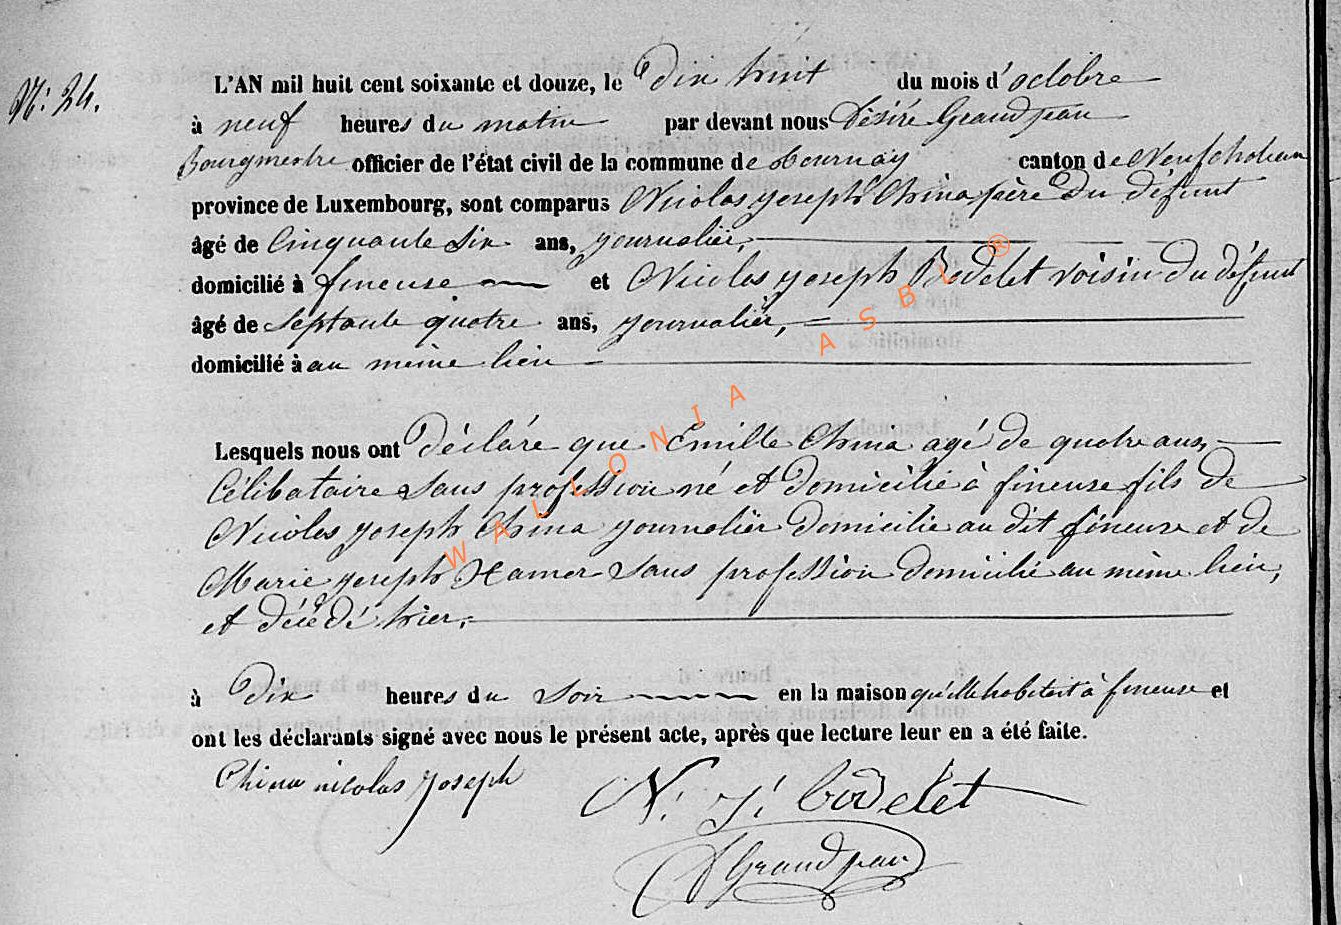 N.° 24.
L'AN mil huit cent soixante et douze, le Dix huit du mois d'octobre
à neuf heures du matin par devant nous Désiré Grandjean
Bourgmestre officier de l'état civil de la commune de Tournay canton de Neufchateau
province de Luxembourg, sont comparus Nicolas Joseph China père du défunt
âgé de Cinquante Six ans, journalier,
domicilié à fineuse et Nicolas Joseph Bodelet voisin du défunt
âgé de Septante quatre ans, journalier,
domicilié à au même lieu
Lesquels nous ont Déclaré que Emille China agé de quatre ans,
Célibataire Sans profession né et domicilié à fineuse fils de
Nicolas Joseph China journalier domicilié au dit fineuse et de
Marie Joseph Hamer Sans profession domicilié au même lieu,
et décédé hier,
à Dix heures du Soir en la maison qu'elle habitait à fineuse et
ont les déclarants signé avec nous le présent acte, après que lecture leur en a été faite.
China nicolas Joseph
N. J. Bodelet
D Grandjean
WALLONIA ASBL ®